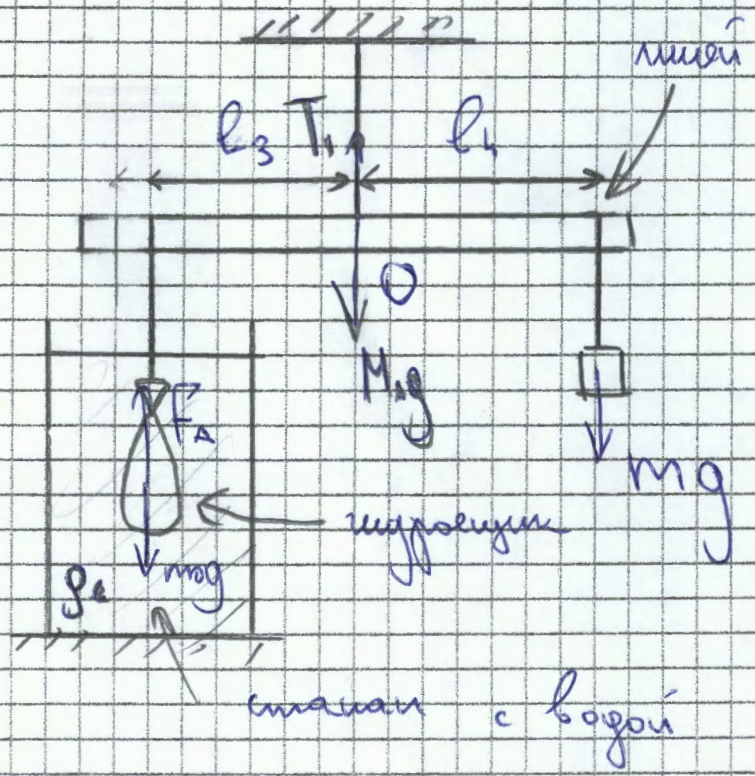 линей
l₃ T₁ l₄
O
M₁g
F_A
mg
шуроещик
m₀g
ρв
стакан с водой